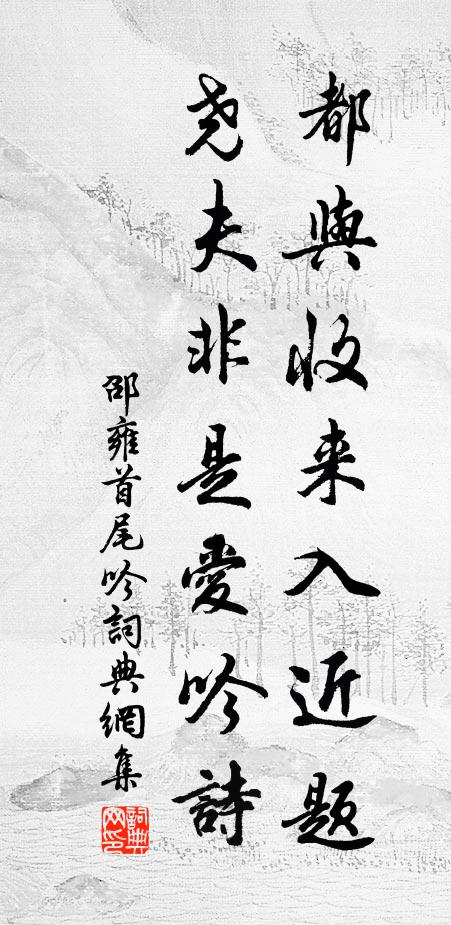 都與收来入近题
尧夫非是愛吟詩
邵雍首尾吟詞典網集
詞典網印